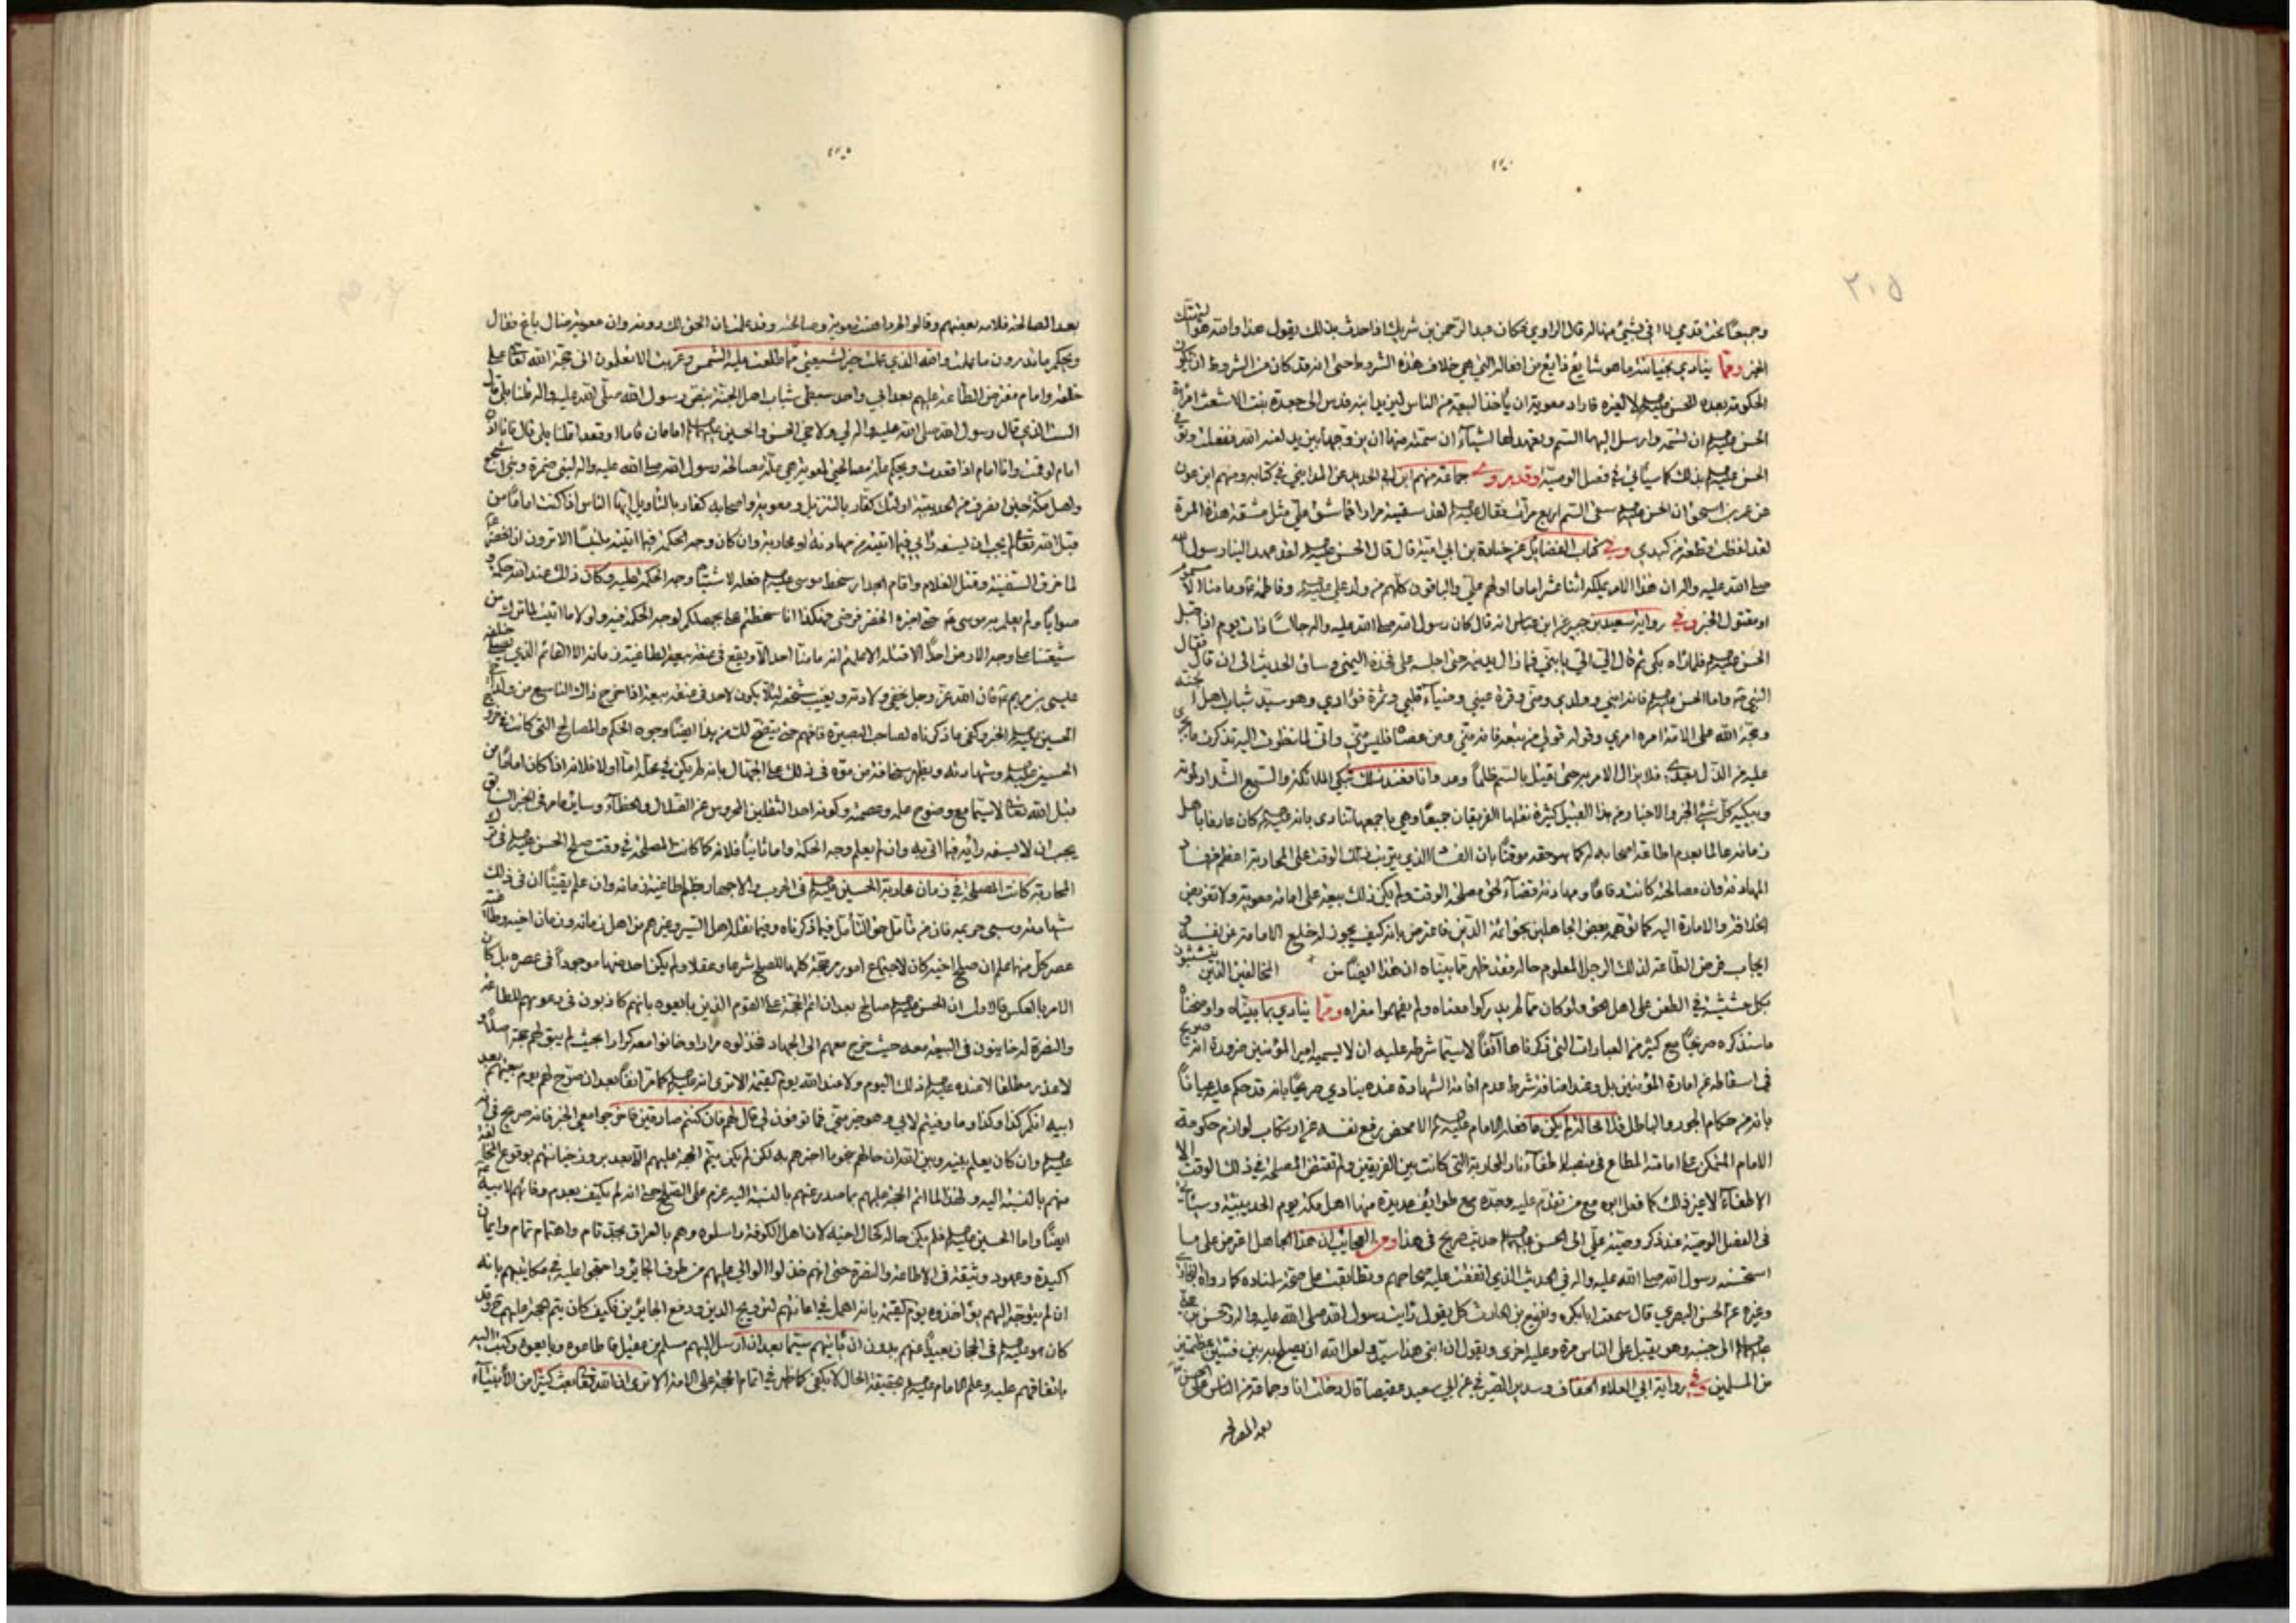 ٢٠٥
وجميعًا تحت قدمي لا افي بشيئ منها له قال الراوي فكان عبد الرحمن بن شريك اذا حدث بذلك يقول هذا والله هو التهتك
الخبر ومما ينادي بخيانته ما هو شايع ذايع من افعاله التي هي خلاف هذه الشروط حتى انه قد كان من الشروط ان يكون
الحكومة بعده للحسن عليه السلام لا لغيره فاراد معوية ان يأخذ البيعة من الناس ليزيد ابنه فدس الى جعدة بنت الاشعث امرأة
الحسن عليه السلام ان تسمه وارسل اليها السم وتعهد لها اشياء ان سمته منها ان يزوجها بيزيد لعنه الله ففعلت وتوفي
الحسن عليه السلام بذلك كما سيأتي في فصل الوصية وقد روى جماعة منهم ابن ابي الحديد عن المدايني في كتابه ومنهم ابن عون
عن عمر بن اسحق ان الحسن عليه السلام سقى السم اربع مرات فقال عليه السلام لقد سقيته مرارا فما شق علي مثل مشقة هذه المرة
لقد لفظت قطعة من كبدي وفي كتاب الفضايل عن جنادة بن ابي امية قال قال الحسن عليه السلام لقد عهد الينا رسول الله
صلى الله عليه واله ان هذا الامر يملكه اثنا عشر اماما اولهم علي والباقون كلهم من ولد علي عليه السلام وفاطمة ع وما منا الا مسموم
او مقتول الخبر وفي رواية سعيد بن جبير عن ابن عباس انه قال كان رسول الله صلى الله عليه واله جالسًا ذات يوم اذ اقبل
الحسن عليه السلام فلما رآه بكى ثم قال الي الي يا بني فما زال يدنيه حتى اجلسه على فخذه اليمنى وساق الحديث الى ان قال فقال
النبي ص واما الحسن عليه السلام فانه ابني وولدي ومني وقرة عيني وضياء قلبي وثمرة فؤادي وهو سيد شباب اهل الجنة
وحجة الله على الامة امره امري وقوله قولي من تبعه فانه مني ومن عصاه فليس مني واني لما نظرت اليه تذكرت ما يجري
عليه من الذل بعدي فلا يزال الامر به حتى يقتل بالسم ظلمًا وعدوانا فعند ذلك تبكي الملائكة والسبع الشداد لموته
ويبكيه كل شيئ الخبر والاخبار من هذا القبيل كثيرة نقلها الفريقان جميعًا وهي باجمعها تنادي بانه عليه السلام كان عارفا باهل
زمانه عالما بعدم اطاعة اصحابه له كما هو حقه موقنًا بان الفساد الذي يترتب في ذلك الوقت على المحاربة اعظم من فساد
المهادنة وان مصالحته كانت دفاعًا ومهادنة قضاء لحق مصلحة الوقت ولم يكن ذلك بيعة على امامة معوية ولا تفويض
الخلافة والامارة اليه كما توهمه بعض الجاهلين بحق ائمة الدين فاعترض بانه كيف يجوز له خلع الامامة عن نفسه و
ايجاب فرض الطاعة لذلك الرجل المعلوم حاله فقد ظهر مما بيناه ان هذا ايضًا من المخالفين الذين يتشبثون
بكل حشيش في الطعن على اهل الحق ولو كان مما لم يدركوا معناه ولم يفهموا مغزاه ومما ينادي بما بيناه واوضحناه
ما سنذكره صريحًا مع كثير من العبارات التي ذكرناها آنفًا لاسيما شرطه عليه ان لا يسميه امير المؤمنين ضرورة انه صريح
في اسقاطه عن امارة المؤمنين بل وعندنا منافذ شرط عدم اقامة الشهادة عنده ينادي صريحًا بانه قد حكم عليه عيانًا
بانه من حكام الجور والباطل فاذا الحالة لم يكن ما فعله الامام عليه السلام الا محض رفع نفسه عن ارتكاب لوازم حكومة
الامام المتمكن على امامته المطاع في منصبه لاطفاء نار المحاربة التي كانت بين الفريقين ولم تقتض المصلحة في ذلك الوقت الا
الاطفاء لا غير ذلك كما فعل ابوه مع من تقدم عليه وجده مع طوائف عديدة منها اهل مكة يوم الحديبية وسيأتي
في الفصل الوصية عند ذكر وصية علي الى الحسن عليهما السلام حديث صريح في هذا ومن العجائب ان هذا الجاهل اعترض على ما
استحسنه رسول الله صلى الله عليه واله في الحديث الذي اتفقت عليه صحاحهم وتطابقت على صحته اسناده كما رواه البخاري
وغيره عن الحسن البصري قال سمعت ابابكره ونفيع بن الحارث كل يقول رايت رسول الله صلى الله عليه واله وحسن بن علي
عليهما السلام الى جنبه وهو يقبل على الناس مرة وعليه اخرى ويقول ان ابني هذا سيد ولعل الله ان يصلح به بين فئتين عظيمتين
من المسلمين وفي رواية ابي العلاء الخفاف وسدير الصيرفي عن ابي سعيد عقيصا قال دخلت انا وجماعة من الناس على الحسن
بعد المصالحة
بعد المصالحة فلامه بعضهم وقالوا لم داهنت معوية وصالحته وقد علمت ان الحق لك دونه وان معوية ضال باغ فقال
ويحكم ما تدرون ما عملت والله الذي عملت خير لشيعتي مما طلعت عليه الشمس وغربت الا تعلمون اني حجة الله تعالى على
خلقه وامام مفترض الطاعة عليهم بعد ابي واحد سيدي شباب اهل الجنة بنص رسول الله صلى الله عليه واله قلنا بلى قال
الست الذي قال رسول الله صلى الله عليه واله لي ولاخي الحسن والحسين عليهما السلام امامان قاما او قعدا قلنا بلى قال فانا اذا
امام لو قمت وانا امام اذا قعدت ويحكم علة مصالحتي لمعوية هي علة مصالحة رسول الله صلى الله عليه واله لبني ضمرة وبني اشجع
واهل مكة حين انصرف من الحديبية اولئك كفار بالتنزيل ومعوية واصحابه كفار بالتأويل ايها الناس اذا كنت اماما من
قبل الله تعالى لم يجب ان يسفه رأيي فيما اتيته من مهادنة او محاربة وان كان وجه الحكمة فيما اتيته ملتبسًا الا ترون ان الخضر ع
لما خرق السفينة وقتل الغلام واقام الجدار سخط موسى عليه السلام فعله لاشتباه وجه الحكمة عليه وكان ذلك عند الله حكمة و
صوابًا ولم يعلم به موسى ع حتى اخبره الخضر فرضى هكذا انا سخطتم علي بجهلكم لوجه الحكمة فيه ولولا ما اتيت لما ترك من
شيعتنا على وجه الارض احدًا الا قتل الا علمتم انه ما منا احد الا ويقع في عنقه بيعة لطاغية زمانه الا القائم الذي يصلي خلفه
عيسى بن مريم ع فان الله عز وجل يخفي ولادته ويغيب شخصه لئلا يكون لاحد في عنقه بيعة اذا خرج ذاك التاسع من ولد اخي
الحسين عليه السلام الخبر وكفى ما ذكرناه لصاحب البصيرة فافهم حتى يتضح لك من هذا ايضًا وجوه الحكم والمصالح التي كانت في خروج
الحسين عليه السلام وشهادته ويظهر سخافة من موه في ذلك على الجهال بانه لم يكن في محله اما اولا فلانه اذا كان اماما من
قبل الله تعالى لاسيما مع وضوح علمه وعصمته وكونه احد الثقلين المحروس عن الضلال والخطاء وسائر ما مر في الخبر السابق
يجب ان لا يسفه رأيه فيما اتى به وان لم يعلم وجه الحكمة واما ثانيًا فلانه كما كانت المصلحة في وقت صلح الحسن عليه السلام في ترك
المحاربة كانت المصلحة في زمان محاربة الحسين عليه السلام في الحرب والاجهار بظلم طاغية زمانه وان علم يقينًا ان في ذلك
شهادته وسبي حريمه فان من تأمل حق التأمل فيما ذكرناه وفيما نقله اهل السير وغيرهم من اهل زمانه وزمان اخيه وطاغية
عصر كل منهما علم ان صلح اخيه كان لاجتماع امور مرجحة كلها للصلح شرعا وعقلا ولم يكن احد منها موجودًا في عصره بل كان
الامر بالعكس فالاول ان الحسن عليه السلام صالح بعد ان اتم الحجة على القوم الذين بايعوه بانهم كاذبون في دعوتهم للطاعة
والنصرة له خاينون في البيعة معه حيث خرج معهم الى الجهاد فخذلوه مرارا وخانوا معه كرارا بحيث لم يبق لهم حجة اصلا و
لا عذر مطلقا لا عنده عليه السلام ذلك اليوم ولا عند الله يوم القيمة الا ترى انه عليه السلام كما مر آنفًا بعد ان صرح لهم يوم بيعتهم بعد
ابيه انكم كذا وكذا وما وفيتم لابي وهو خير مني فما توفون لي قال لهم فان كنتم صادقين فاخرجوا معي الخبر فانه صريح في انه
عليه السلام وان كان يعلم بينه وبين الله ان حالهم نحو ما اخبرهم به لكن لم يكن يتم الحجة عليهم الا بعد بروز خيانتهم بوقوع المخالفة
منهم بالنسبة اليه ولهذا لما اتم الحجة عليهم بما صدر عنهم بالنسبة اليه عزم على الصلح حتى انه لم يكتف بعدم وفائهم لابيه
ايضًا واما الحسين عليه السلام فلم يكن حاله كحال اخيه لان اهل الكوفة راسلوه وهم بالعراق بجد تام واهتمام تمام وايمان
اكيدة وعهود وثيقة في الاطاعة والنصرة حتى انهم خذلوا الوالي عليهم من طرف الجائر واحتجوا عليه في مكاتيبهم بانه
ان لم يتوجه اليهم يؤاخذوه يوم القيمة بانه اهمل في اعانتهم لترويج الدين ودفع الجائرين فكيف كان يتم حجة عليهم وقد
كان هو عليه السلام في الحجاز بعيدًا عنهم بدون ان يأتيهم سيما بعد ان ارسل اليهم مسلم بن عقيل فاطاعوه وبايعوه وكتب اليه
باتفاقهم عليه وعلم الامام عليه السلام بحقيقة الحال لا يكفي كما ظهر في اتمام الحجة على الامة الا ترى ان الله تعالى بعث كثيرا من الانبياء